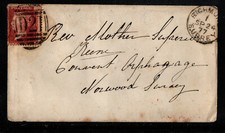 102
RICHMOND
1
SP 24
77
SURREY
Rev Mother Superior
Convent Orphanage
Norwood Surrey